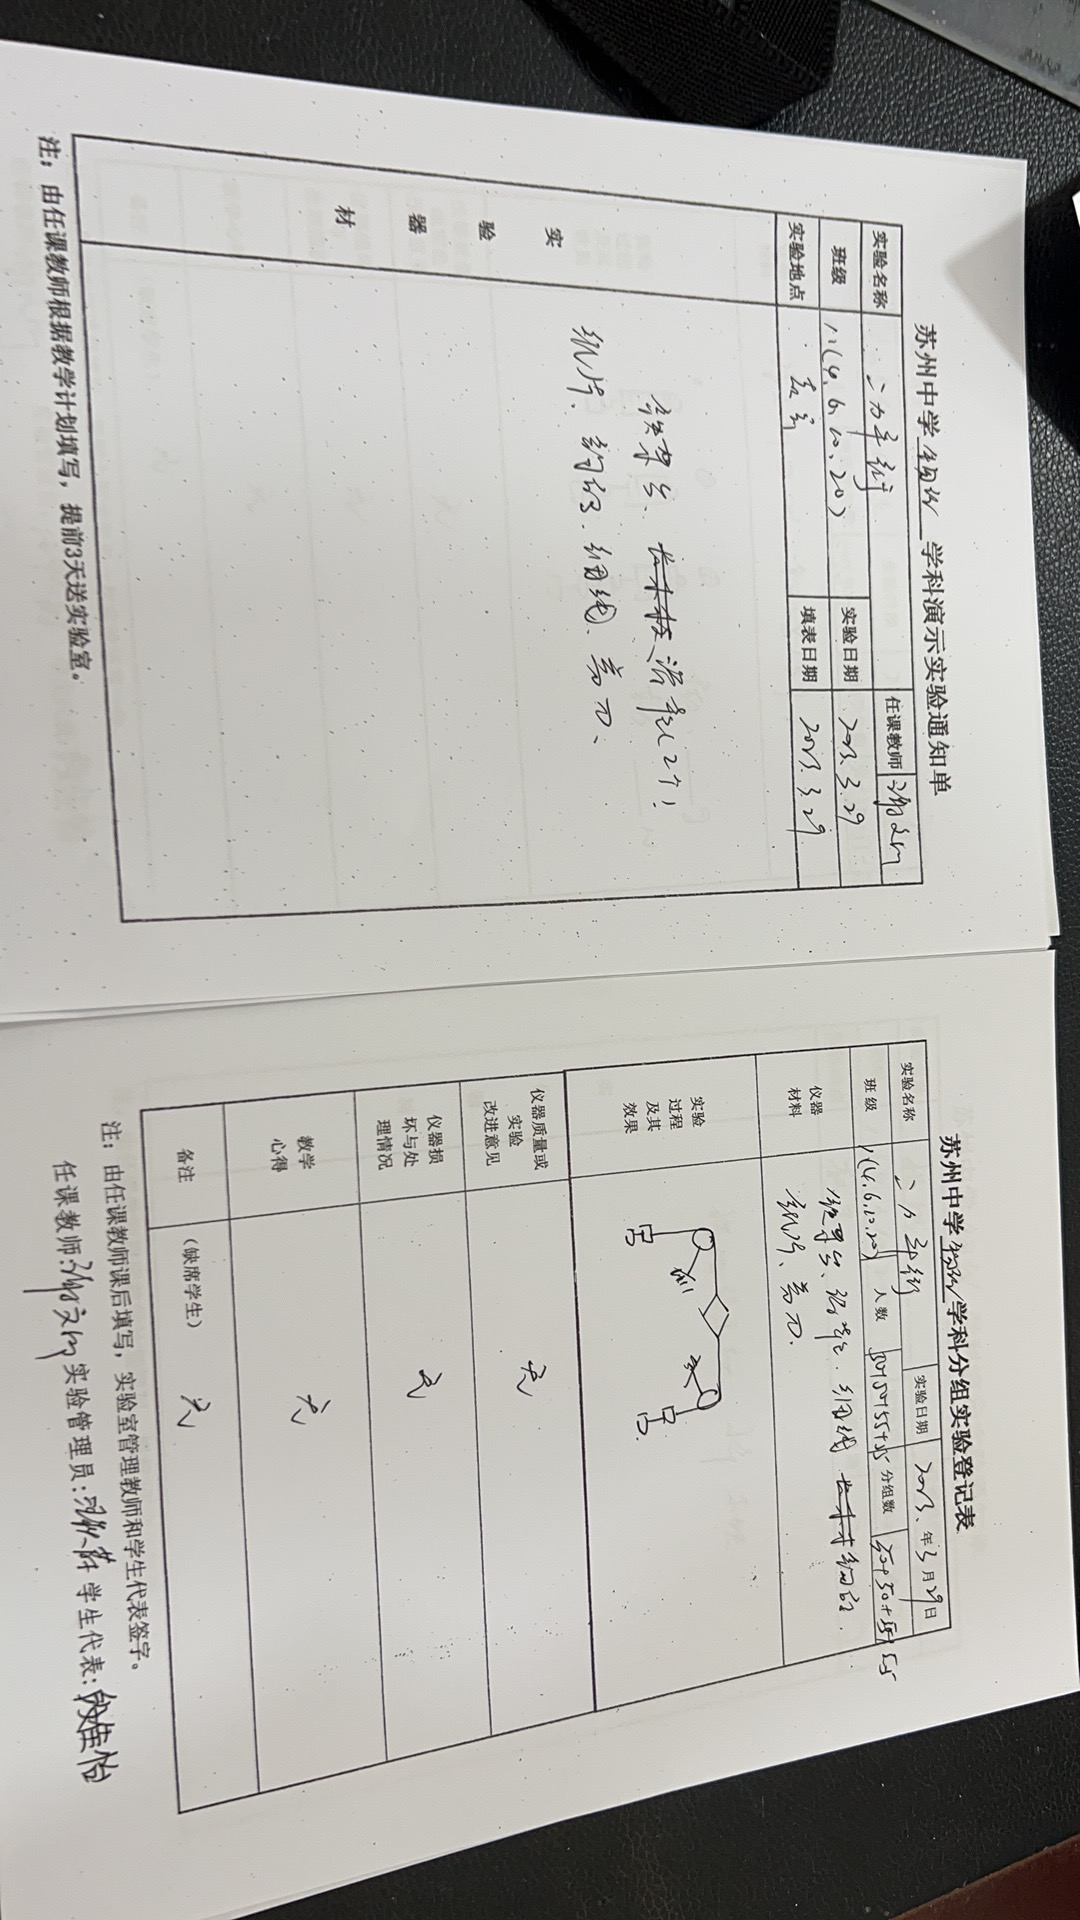 苏州中学 物理 学科演示实验通知单
实验名称 二力平衡 任课教师
班级 八(4.6.10.20) 实验日期 2023.3.29
实验地点 教室 填表日期 2023.3.29
实验器材
铁架台、长木板、滑轮(2个)
纸片、钩码、细线、剪刀、
注：由任课教师根据教学计划填写，提前3天送实验室。
苏州中学 物理 学科分组实验登记表
实验名称 二力平衡 实验日期 2023.年3月29日
班级 八(4.6.10.20) 人数 分组数
仪器材料 铁架台、滑轮、细线 长木
纸片、剪刀、
实验过程及其效果
仪器质量或实验改进意见 无
仪器损坏与处理情况 无
教学心得 无
备注 （缺席学生） 无
注：由任课教师课后填写，实验室管理教师和学生代表签字。
任课教师: 实验管理员: 学生代表:段佳怡